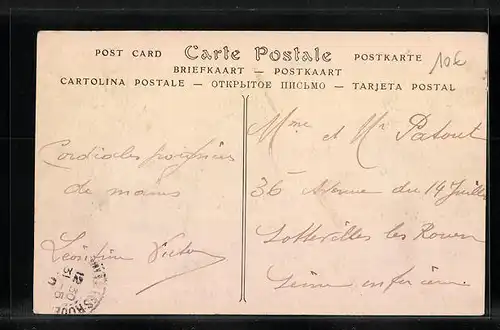 POST CARD Carte Postale POSTKARTE
BRIEFKAART — POSTKAART
CARTOLINA POSTALE — ОТКРЫТОЕ ПИСЬМО — TARJETA POSTAL
10€
Cordiales poignées
de mains
Léontine Victor
Mme et Mr Patout
36 Avenue du 14 Juillet
Sotteville les Rouen
Seine inférieure